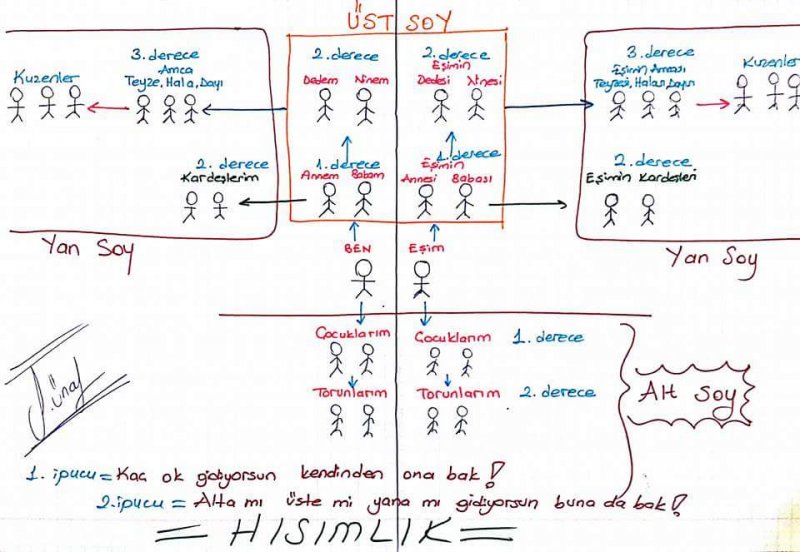 ÜST SOY
3. derece
Amca
Teyze, Hala, Dayı
Kuzenler
2. derece
Dedem Ninem
2. derece
Eşimin
Dedesi Ninesi
3. derece
Eşimin Amcası
Teyzesi, Halası, Dayısı
Kuzenler
2. derece
Kardeşlerim
1. derece
Annem Babam
1. derece
Eşimin
Annesi Babası
2. derece
Eşimin Kardeşleri
Yan Soy
Yan Soy
BEN
Eşim
Çocuklarım
Çocuklarım
1. derece
Torunlarım
Torunlarım
2. derece
Alt Soy
1. ipucu = Kaç ok gidiyorsun kendinden ona bak!
2. ipucu = Alta mı üste mi yana mı gidiyorsun buna da bak!
= HISIMLIK =